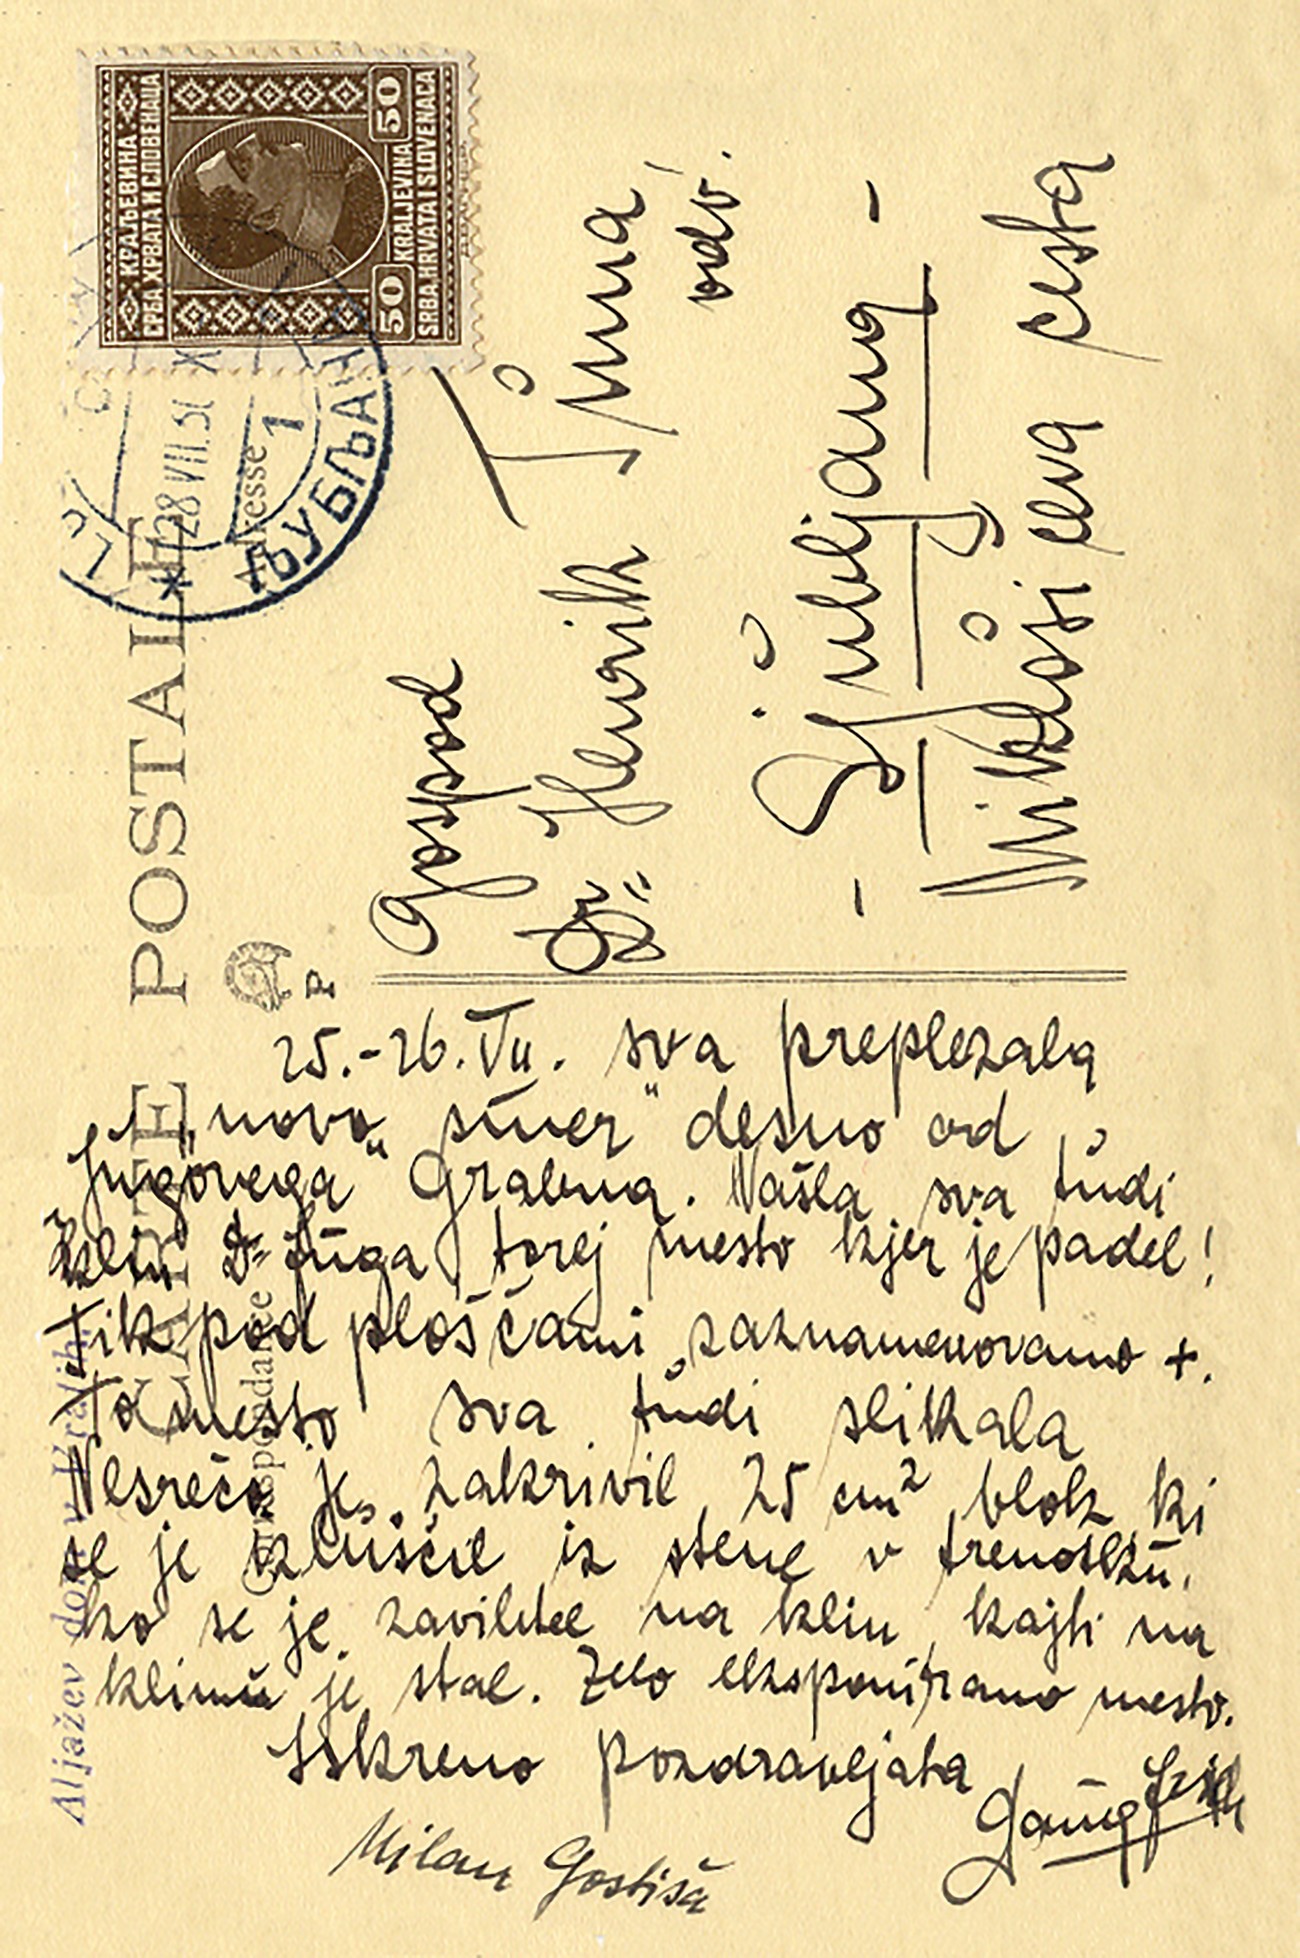 КРАЉЕВИНА
СРБА, ХРВАТА И СЛОВЕНАЦА
50 KRALJEVINA 50
SRBA, HRVATA I SLOVENACA
28 VIII. 31 X
1
ЉУБЉАНА
CARTE POSTALE
Adresse
P
Gospod
Dr. Henrik Tuma
odv.
- Ljubljana -
Miklošičeva cesta
Aljažev dom v Vratih
25.-26. VII. sva preplezala
"novo" smer" desno od
Jugovega" Grabna. Našla sva tudi
klin Dr Juga torej mesto kjer je padel!
Tik pod ploščami zaznamenovano +.
To mesto sva tudi slikala
Nesrečo je zakrivil 25 cm² blok, ki
se je izluščil iz stene v trenotku,
ko se je zavihtel na klin, kajti na
klinu je stal. Zelo eksponirano mesto.
Iskreno pozdravljata
Milan Gostiša